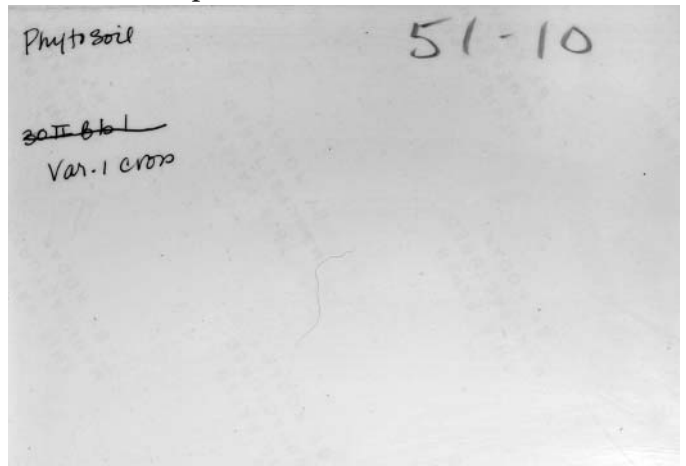 Phytosoil
51-10
30 II B b 1
Var. 1 cross